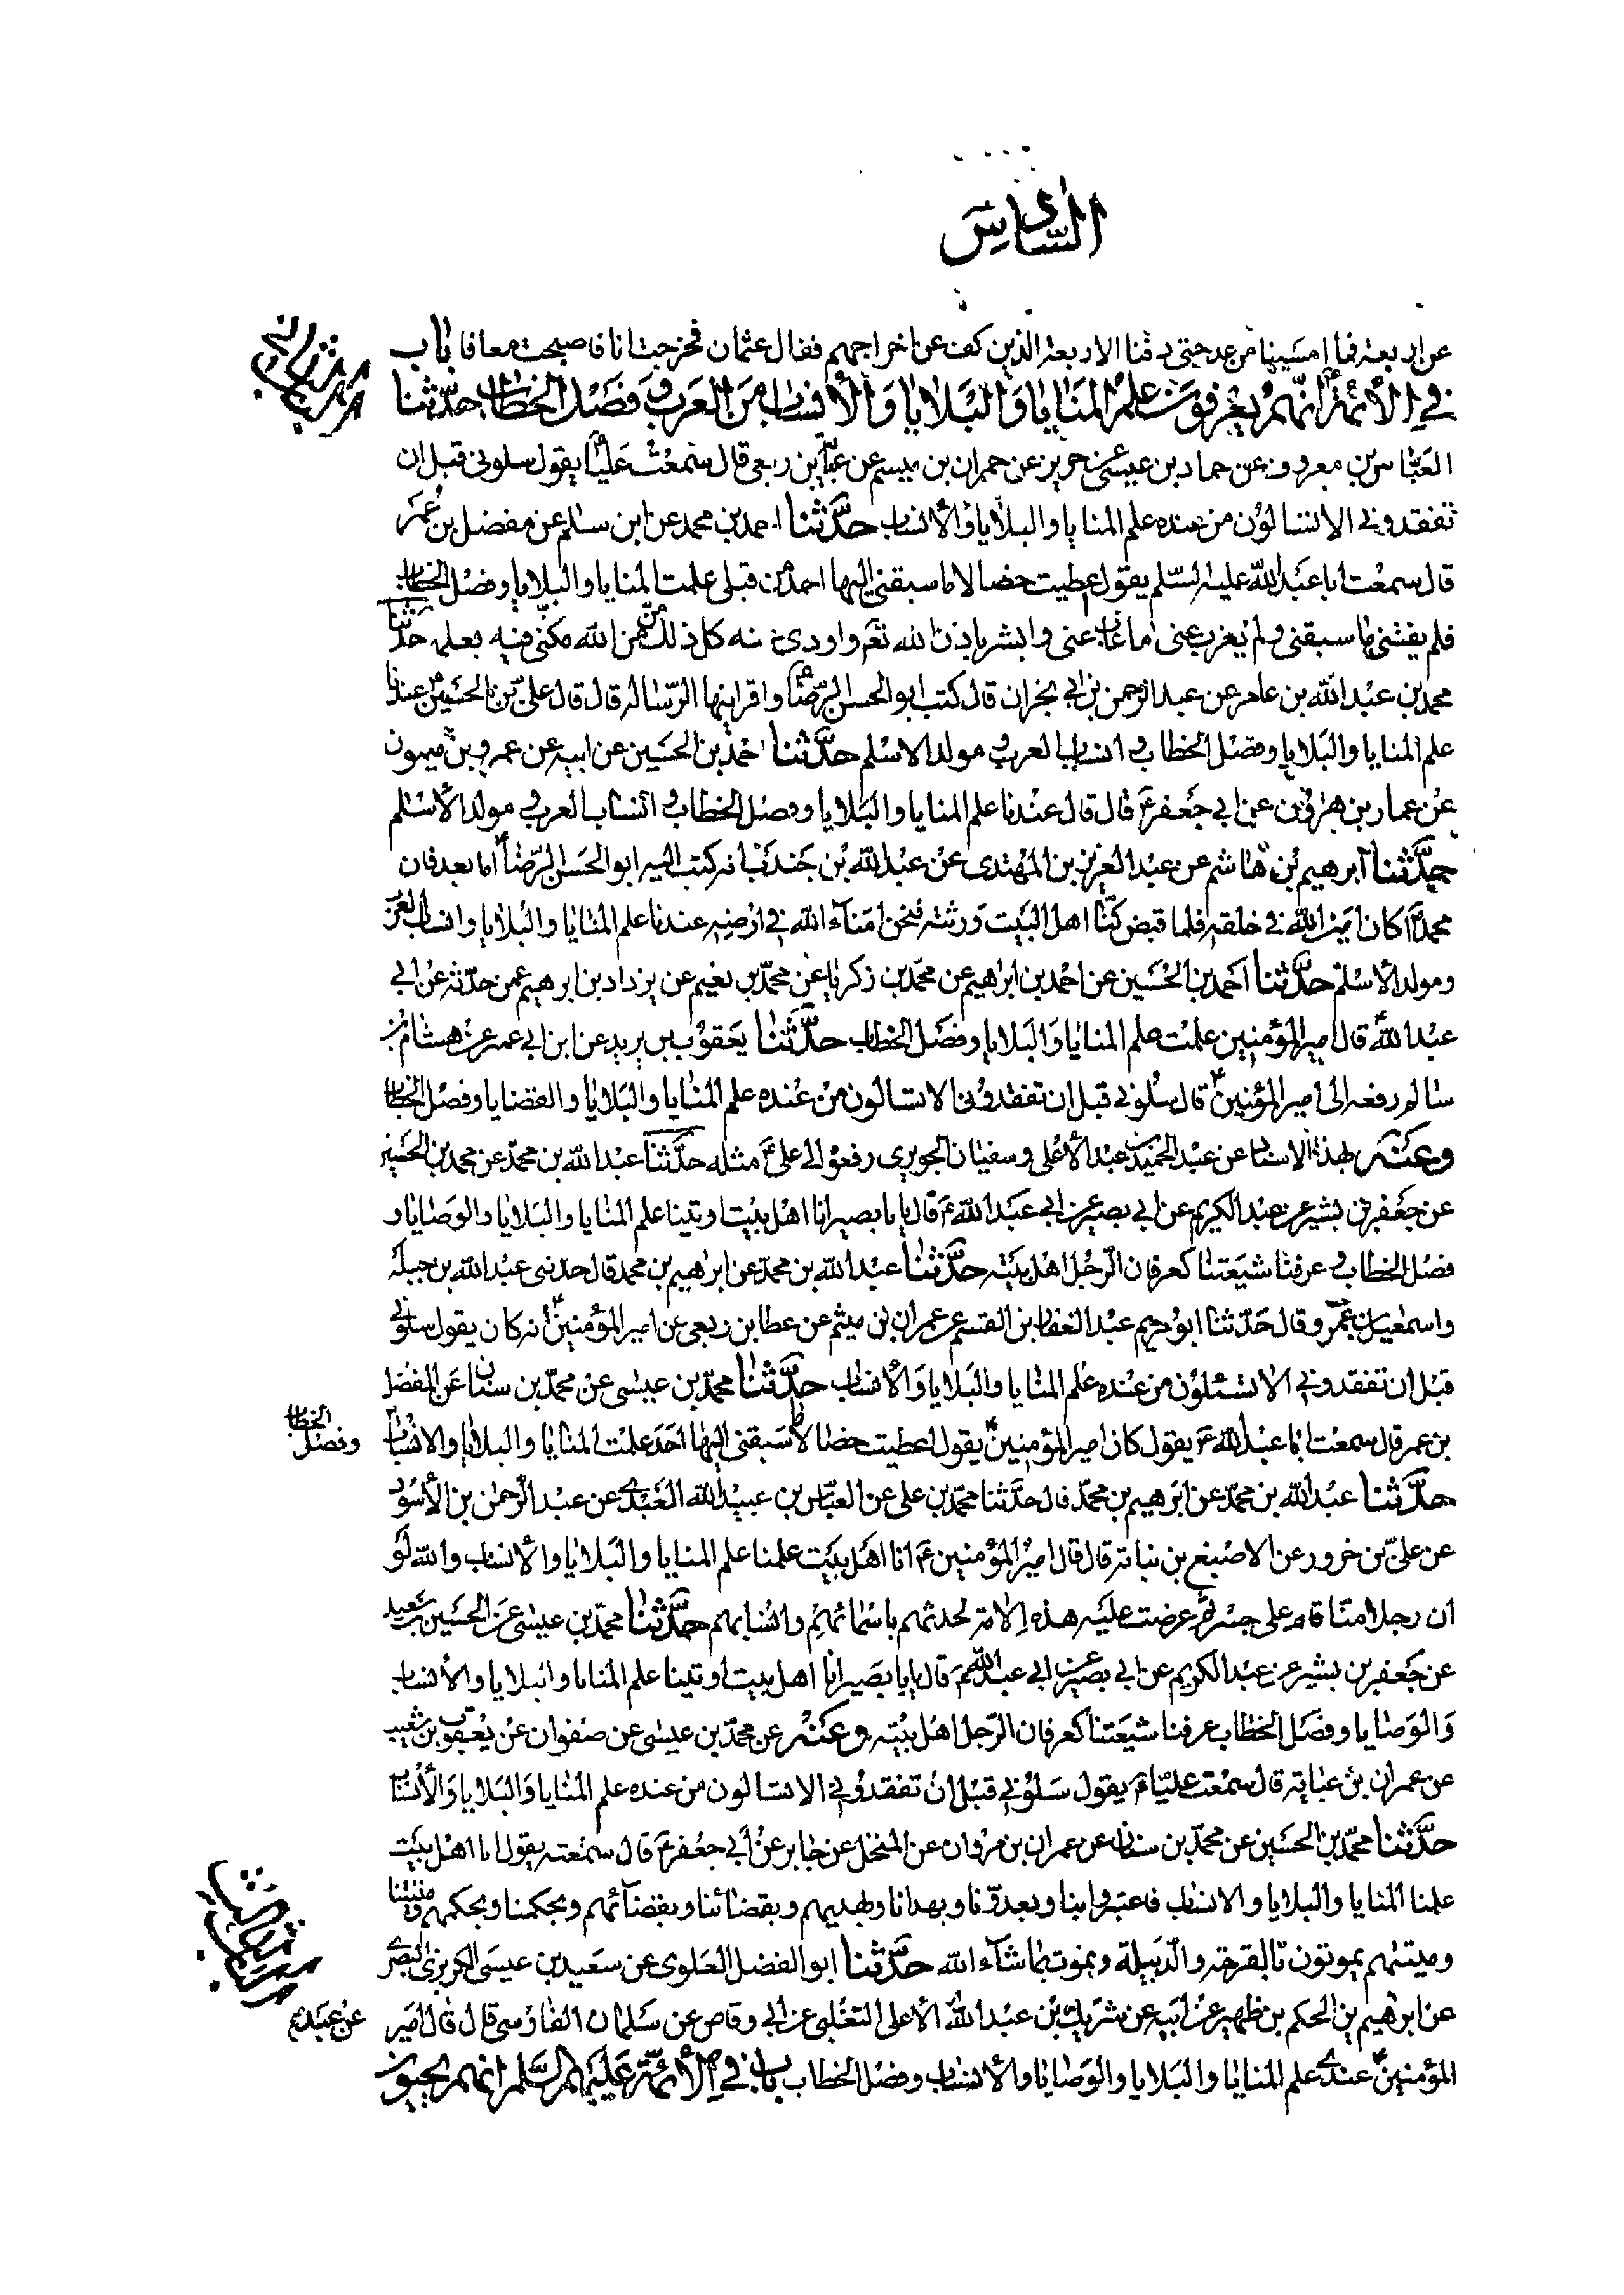 السادس
عن اربعة فما امسينا من غد حتى دفنا الاربعة الذين كف عن اخراجهم فقال عثمان فخرجت انا فاصبحت معافا باب
في الأئمة انهم يعرفون علم المنايا والبلايا والأنساب من العرب وفصل الخطاب حدثنا
العباس بن معروف عن حماد بن عيسى عن حريز عن حمران بن ميسم عن عباية بن ربعي قال سمعت عليا يقول سلوني قبل ان
تفقدوني الا تسالون من عنده علم المنايا والبلايا والأنساب حدثنا احمد بن محمد عن ابن سلم عن مفضل بن عمر
قال سمعت ابا عبد الله عليه السلم يقول اعطيت خصالا ما سبقني اليها احد من قبلي علمت المنايا والبلايا وفصل الخطاب
فلم يفتني ما سبقني ولم يعزب عني ما غاب عني وابشر باذن الله تعم واودي عنه كل ذلك من من الله مكنني فيه بعلمه حدثنا
محمد بن عبد الله بن عامر عن عبد الرحمن بن ابي نجران قال كتب ابو الحسن الرضا واقرانيها الرسالة قال قال علي بن الحسين عندنا
علم المنايا والبلايا وفصل الخطاب و انساب العرب و مولد الاسلم حدثنا احمد بن الحسين عن ابيه عن عمرو بن ميمون
عن عمار بن هرون عن ابي جعفر ع قال قال عندنا علم المنايا والبلايا وفصل الخطاب و انساب العرب و مولد الأسلم
حدثنا ابرهيم بن هاشم عن عبد العزيز بن المهتدي عن عبد الله بن جندب انه كتب اليه ابو الحسن الرضا اما بعد فان
محمدا كان امين الله في خلقه فلما قبض كنا اهل البيت ورثته فنحن امناء الله في ارضه عندنا علم المنايا والبلايا وانساب العرب
ومولد الأسلم حدثنا احمد بن الحسين عن احمد بن ابراهيم عن محمد بن زكريا عن محمد بن نعيم عن يزداد بن ابرهيم عمن حدثه عن ابي
عبد الله قال امير المؤمنين علمت علم المنايا والبلايا وفصل الخطاب حدثنا يعقوب بن يزيد عن ابن ابي عمير عن هشام بن
سالم رفعه الى امير المؤمنين قال سلوني قبل ان تفقدوني الا تسالون من عنده علم المنايا والبلايا والقضايا وفصل الخطاب
وعنه بهذا الاسناد عن عبد الحميد بن عبد الأعلى وسفيان الجويري رفعوه الى علي ع مثله حدثنا عبد الله بن محمد عن محمد بن الحسين
عن جعفر بن بشير عن عبد الكريم عن ابي بصير عن ابي عبد الله ع قال يا با بصير انا اهل بيت اوتينا علم المنايا والبلايا والوصايا و
فصل الخطاب و عرفنا شيعتنا كعرفان الرجل اهل بيته حدثنا عبد الله بن محمد عن ابراهيم بن محمد قال حدثني عبد الله بن جبلة
واسمعيل بن عمرو قال حدثنا ابو مريم عبد الغفار بن القسم عن عمران بن ميثم عن عطا بن ربعي عن امير المؤمنين انه كان يقول سلوني
قبل ان تفقدوني الا تسئلون من عنده علم المنايا والبلايا والأنساب حدثنا محمد بن عيسى عن محمد بن سنان عن المفضل
بن عمر قال سمعت ابا عبد الله ع يقول كان امير المؤمنين يقول اعطيت خصالا ما سبقني اليها احد علمت المنايا والبلايا والانساب
وفصل الخطاب
حدثنا عبد الله بن محمد عن ابرهيم بن محمد قال حدثنا محمد بن علي عن العباس بن عبيد الله العبدي عن عبد الرحمن بن الأسود
عن علي بن حزور عن الاصبغ بن نباتة قال قال امير المؤمنين ع انا اهل بيت علمنا علم المنايا والبلايا والأنساب والله لو
ان رجلا منا قام على جسر ثم عرضت عليه هذه الامة لحدثهم باسمائهم وانسابهم حدثنا محمد بن عيسى عن الحسين بن سعيد
عن جعفر بن بشير عن عبد الكريم عن ابي بصير عن ابي عبد الله ع قال يا با بصير انا اهل بيت اوتينا علم المنايا والبلايا والأنساب
والوصايا وفصل الخطاب عرفنا شيعتنا كعرفان الرجل اهل بيته وعنه عن محمد بن عيسى عن صفوان عن يعقوب بن شعيب
عن عمران بن عباية قال سمعت عليا ع يقول سلوني قبل ان تفقدوني الا تسالون من عنده علم المنايا والبلايا والأنساب
حدثنا محمد بن الحسين عن محمد بن سنان عن عمران بن مروان عن المنخل عن جابر عن ابي جعفر ع قال سمعته يقول انا اهل بيت
علمنا المنايا والبلايا والانساب فاعتبروا بنا وبعدونا وبهدانا وبهديهم وبقضائنا وبقضائهم وبحكمنا وبحكمهم وميتتنا
وميتتهم يموتون بالقرحة والدبيلة ونموت بما شاء الله حدثنا ابو الفضل العلوي عن سعيد بن عيسى الكريزي البصري
عن ابرهيم بن الحكم بن ظهير عن ابيه عن شريك بن عبد الله الأعلى التغلبي عن ابي وقاص عن سلمان الفارسي قال قال امير
المؤمنين عندي علم المنايا والبلايا والوصايا والأنساب وفصل الخطاب باب في الأئمة عليهم السلم انهم يحيون